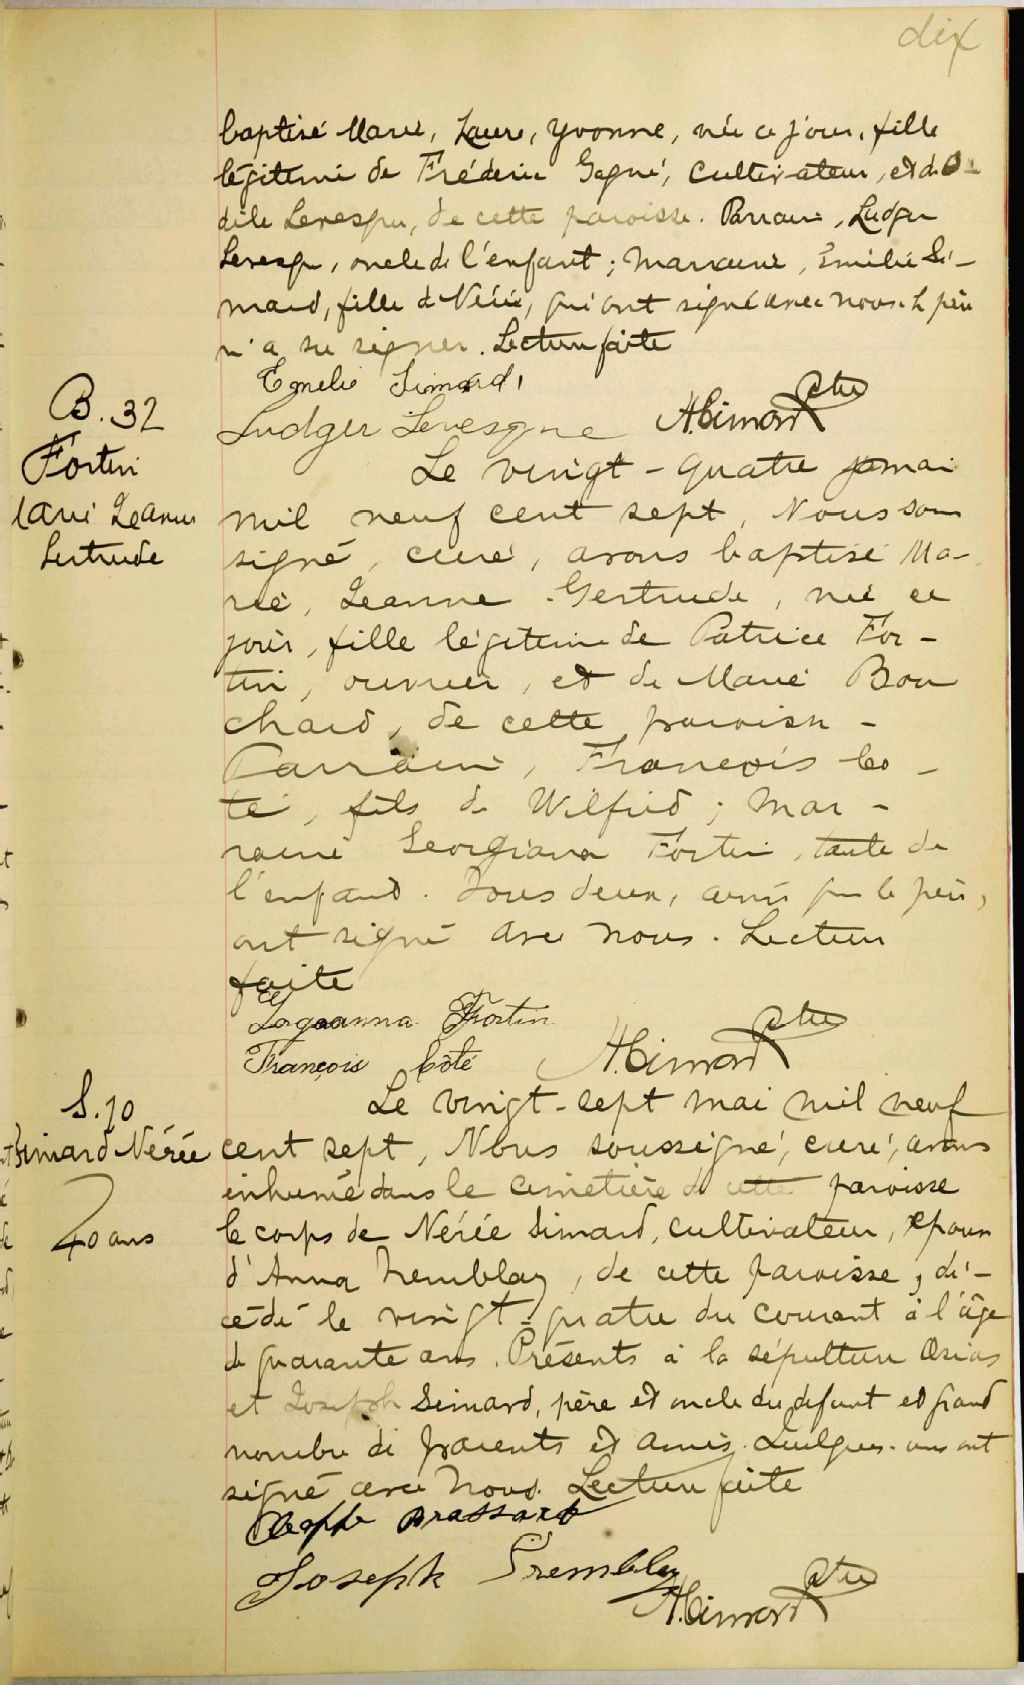 dix
baptisé Marie, Laure, Yvonne, née ce jour, fille
légitime de Fréderic Gagné, cultivateur, et de O-
dile Levesque, de cette paroisse. Parrain, Ludger
Levesque, oncle de l'enfant; marraine, Emélie Si-
mard, fille de Nérée, qui ont signé avec nous. Le père
n'a su signer. Lecture faite
Emelie Simard,
Ludger Levesque A. Simard Ptre
B. 32
Fortin
Marie Jeanne
Gertrude
Le vingt-quatre mai
mil neuf cent sept, Nous sous
signé, curé, avons baptisé Ma-
rie, Jeanne Gertrude, née ce
jour, fille légitime de Patrice For-
tin, ouvrier, et de Marie Bou
chard, de cette paroisse -
Parrain, François Co-
té, fils de Wilfrid; Mar-
raine Georgiana Fortin, tante de
l'enfant. Tous deux, ainsi que le père,
ont signé avec nous. Lecture
faite
Fortin
François Côté A. Simard Ptre
S. 10
Simard Nérée
40 ans
Le vingt-sept mai mil neuf
cent sept, Nous soussigné, curé, avons
inhumé dans le cimetière de cette paroisse
le corps de Nérée Simard, cultivateur, époux
d'Anna Tremblay, de cette paroisse, dé-
cédé le vingt-quatre du courant à l'âge
de quarante ans. Présents à la sépulture Osias
et Joseph Simard, père et oncle du défunt et grand
nombre de parents et amis. Quelques-uns ont
signé avec Nous. Lecture faite
Brassard
Joseph Tremblay
A. Simard Ptre